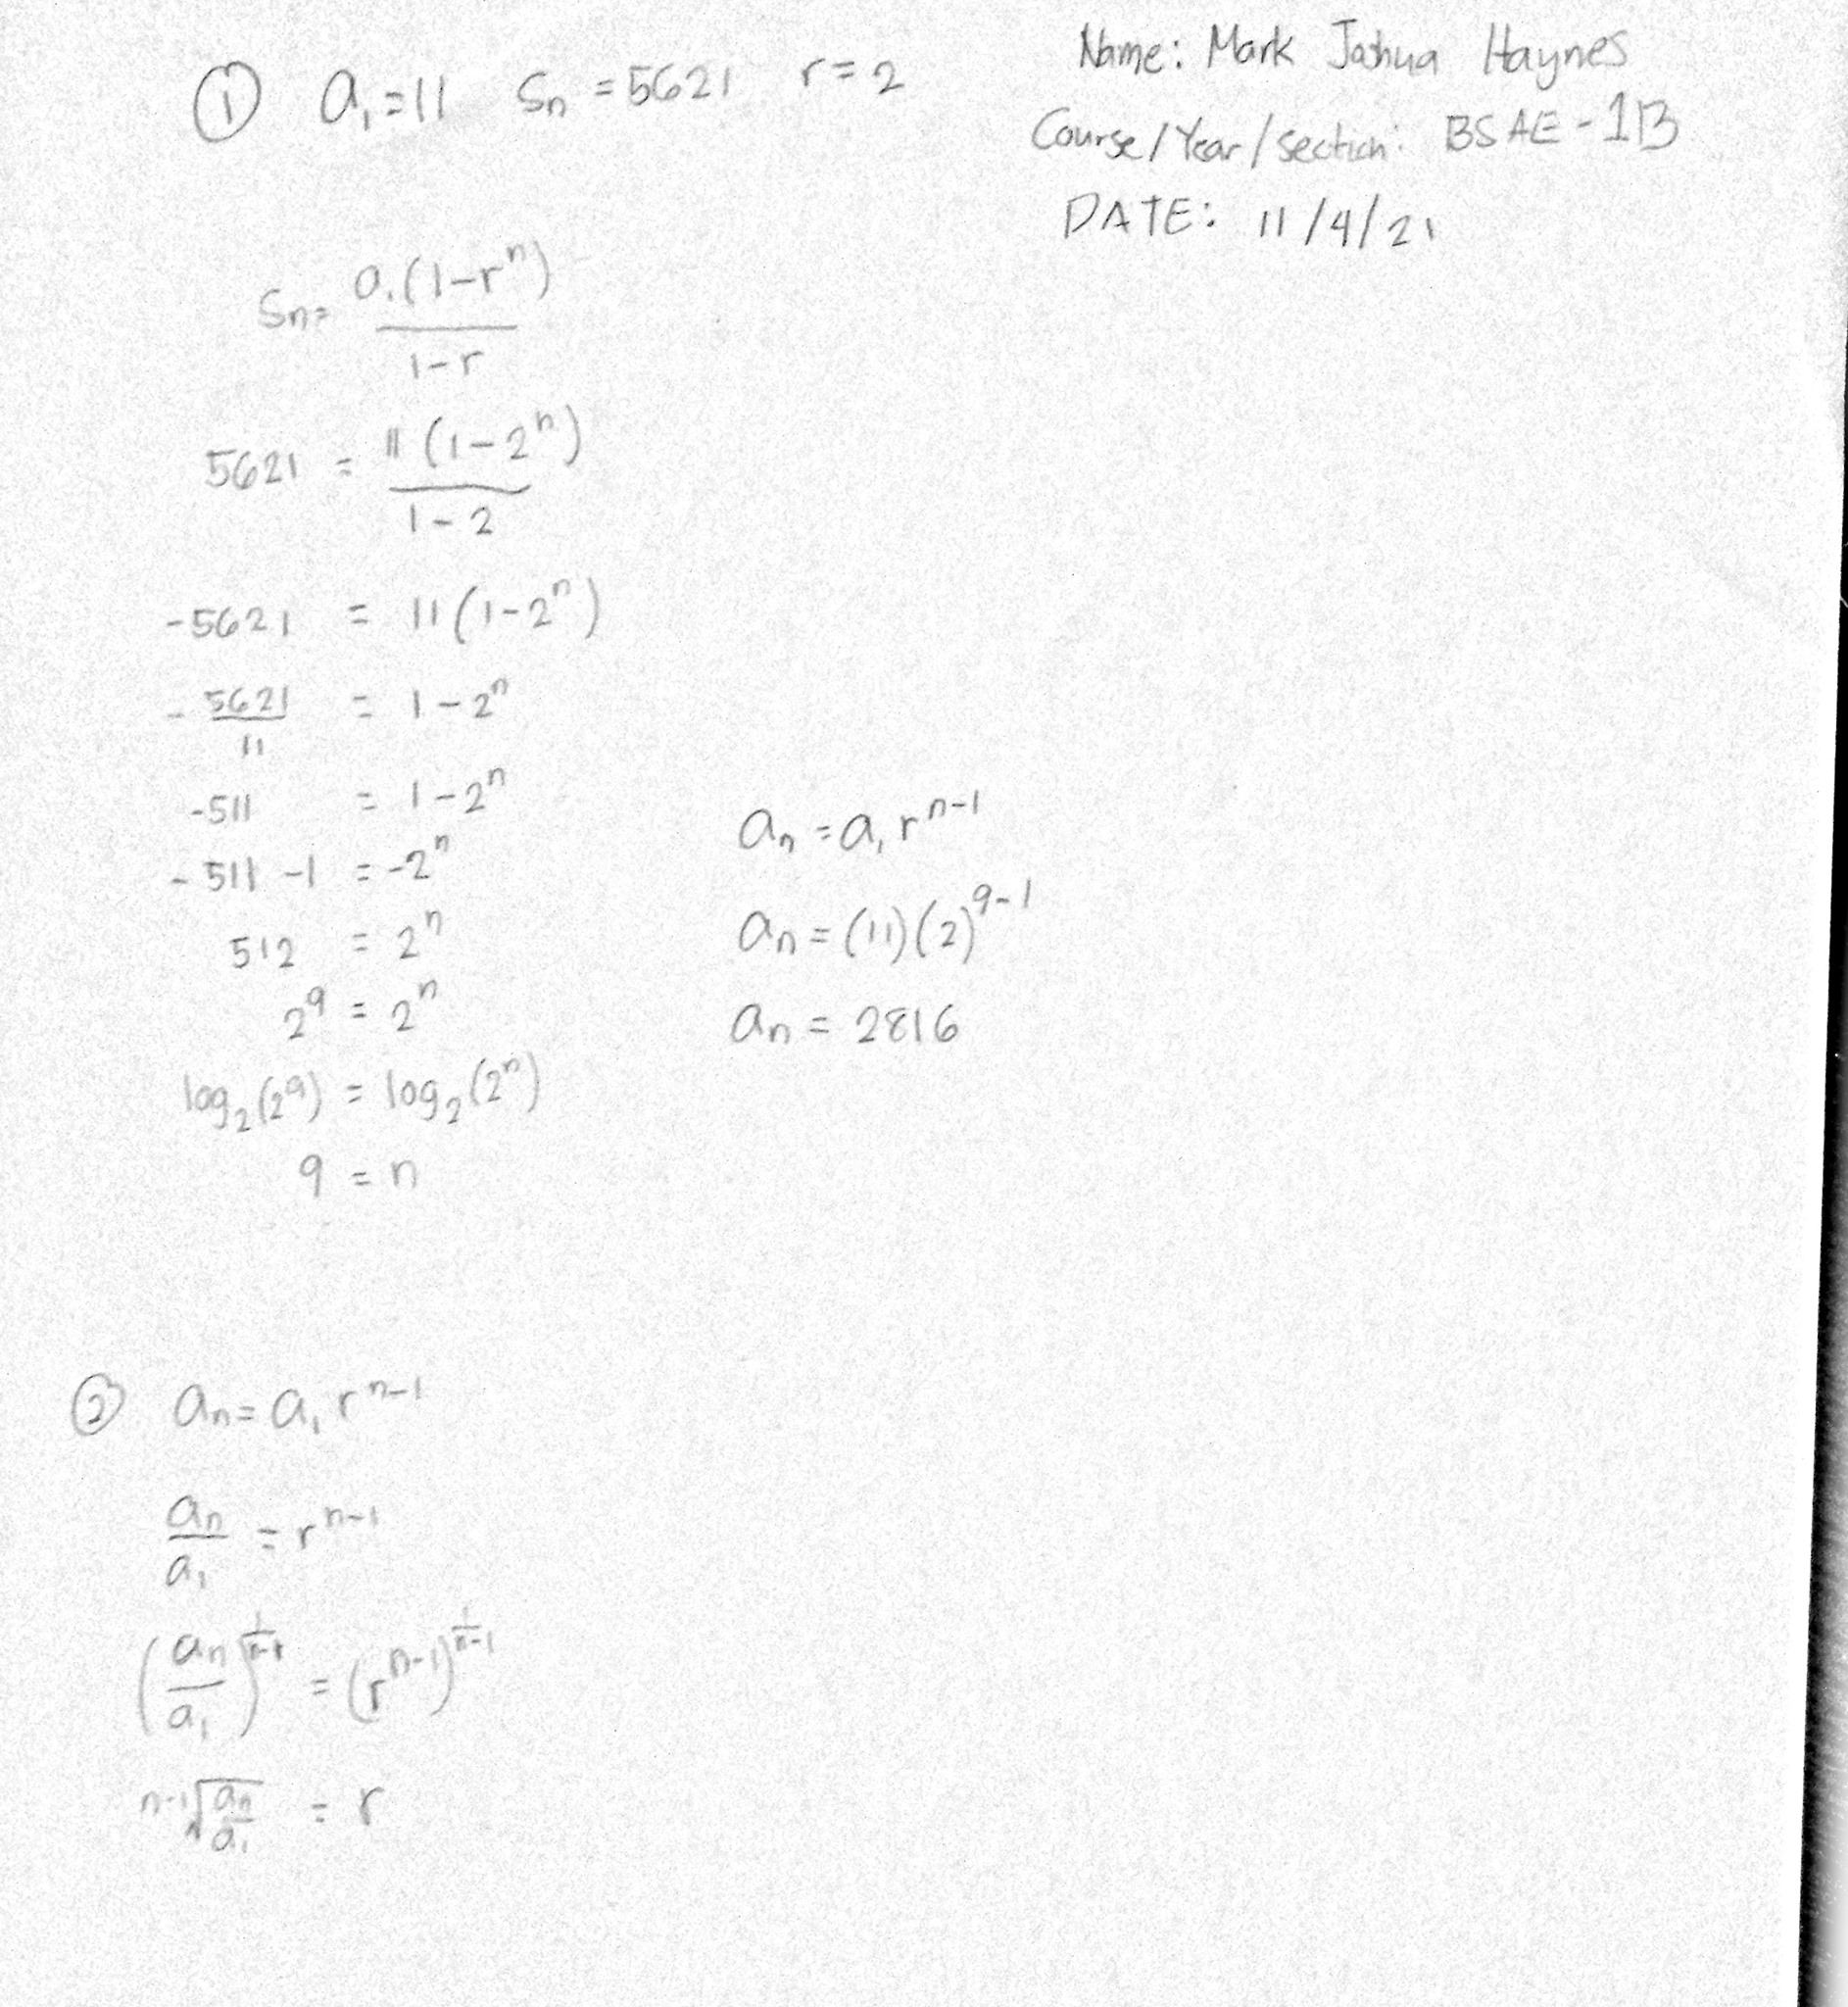 ① a₁=11 Sₙ = 5621 r = 2
Name: Mark Joshua Haynes
Course/Year/section: BSAE-1B
DATE: 11/4/21
Sₙ= a₁(1-rⁿ)
1-r
5621 = 11(1-2ⁿ)
1-2
-5621 = 11(1-2ⁿ)
- 5621 = 1-2ⁿ
11
-511 = 1-2ⁿ
-511 -1 = -2ⁿ
512 = 2ⁿ
2⁹ = 2ⁿ
log₂(2⁹) = log₂(2ⁿ)
9 = n
aₙ = a₁ rⁿ⁻¹
aₙ = (11)(2)⁹⁻¹
aₙ = 2816
② aₙ = a₁ rⁿ⁻¹
aₙ/a₁ = rⁿ⁻¹
(aₙ/a₁)^(1/(n-1)) = (rⁿ⁻¹)^(1/(n-1))
ⁿ⁻¹√(aₙ/a₁) = r